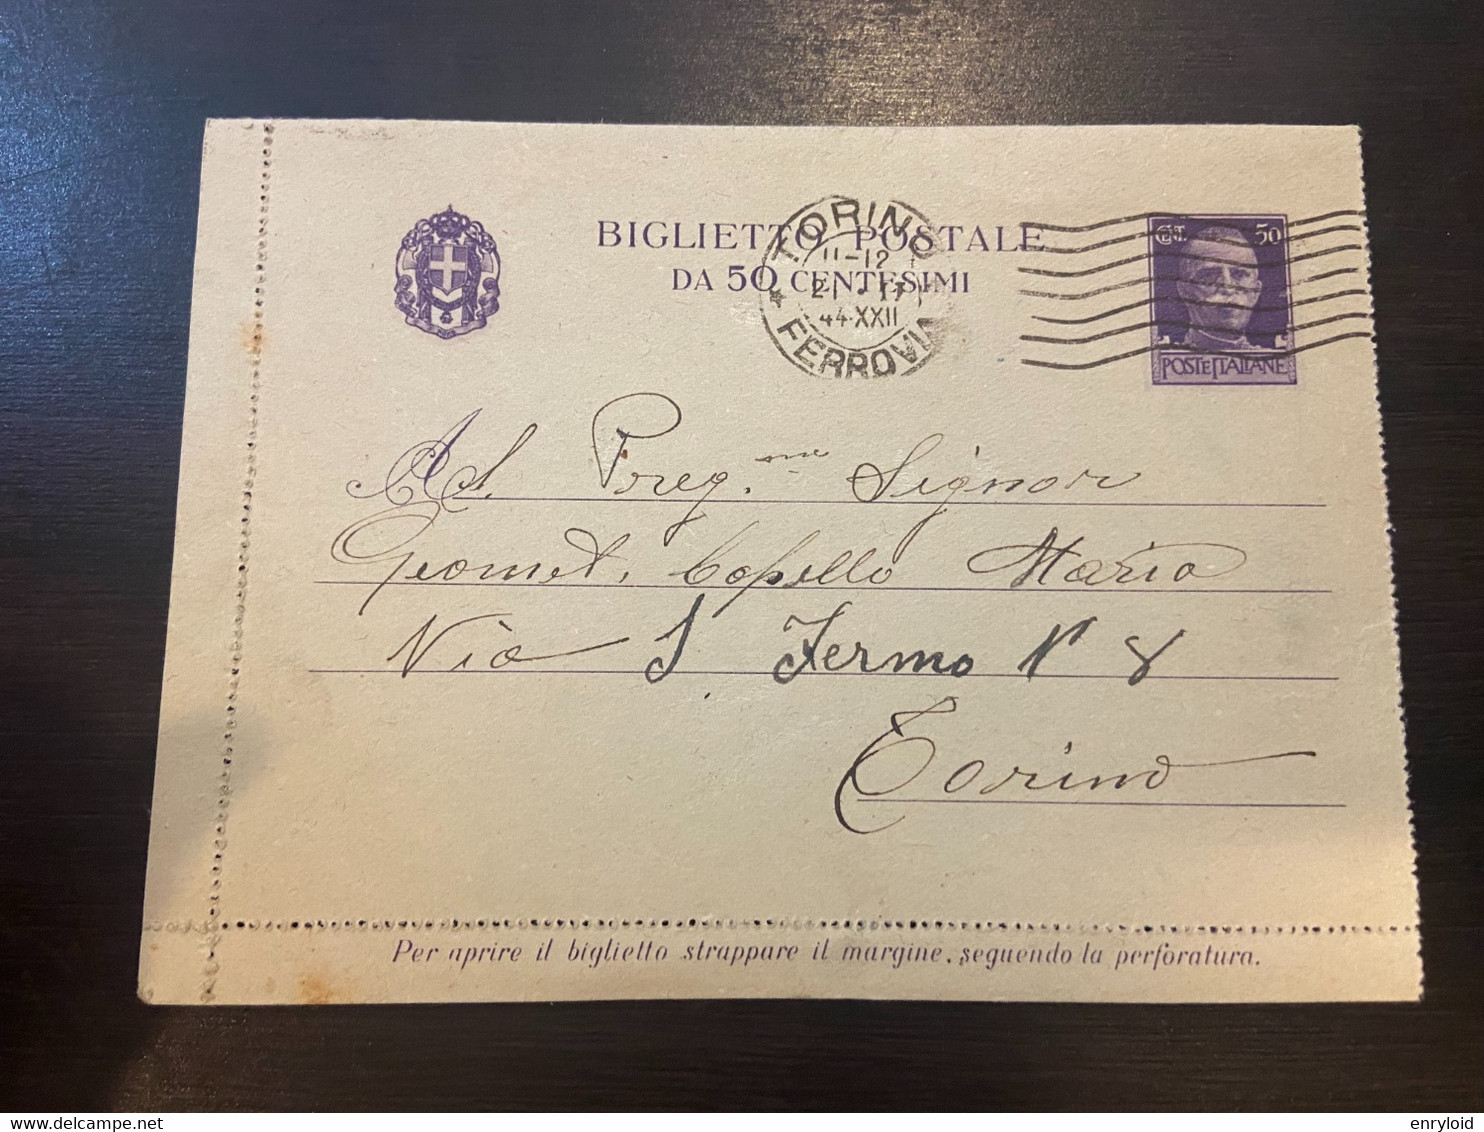 BIGLIETTO POSTALE
DA 50 CENTESIMI
TORINO
11-12
44·XXII
FERROVIA
50
POSTE ITALIANE
Al Preg.mo Signor
Geomet. Copello Mario
Via S Fermo N 8
Torino
Per aprire il biglietto strappare il margine, seguendo la perforatura.
enryloid